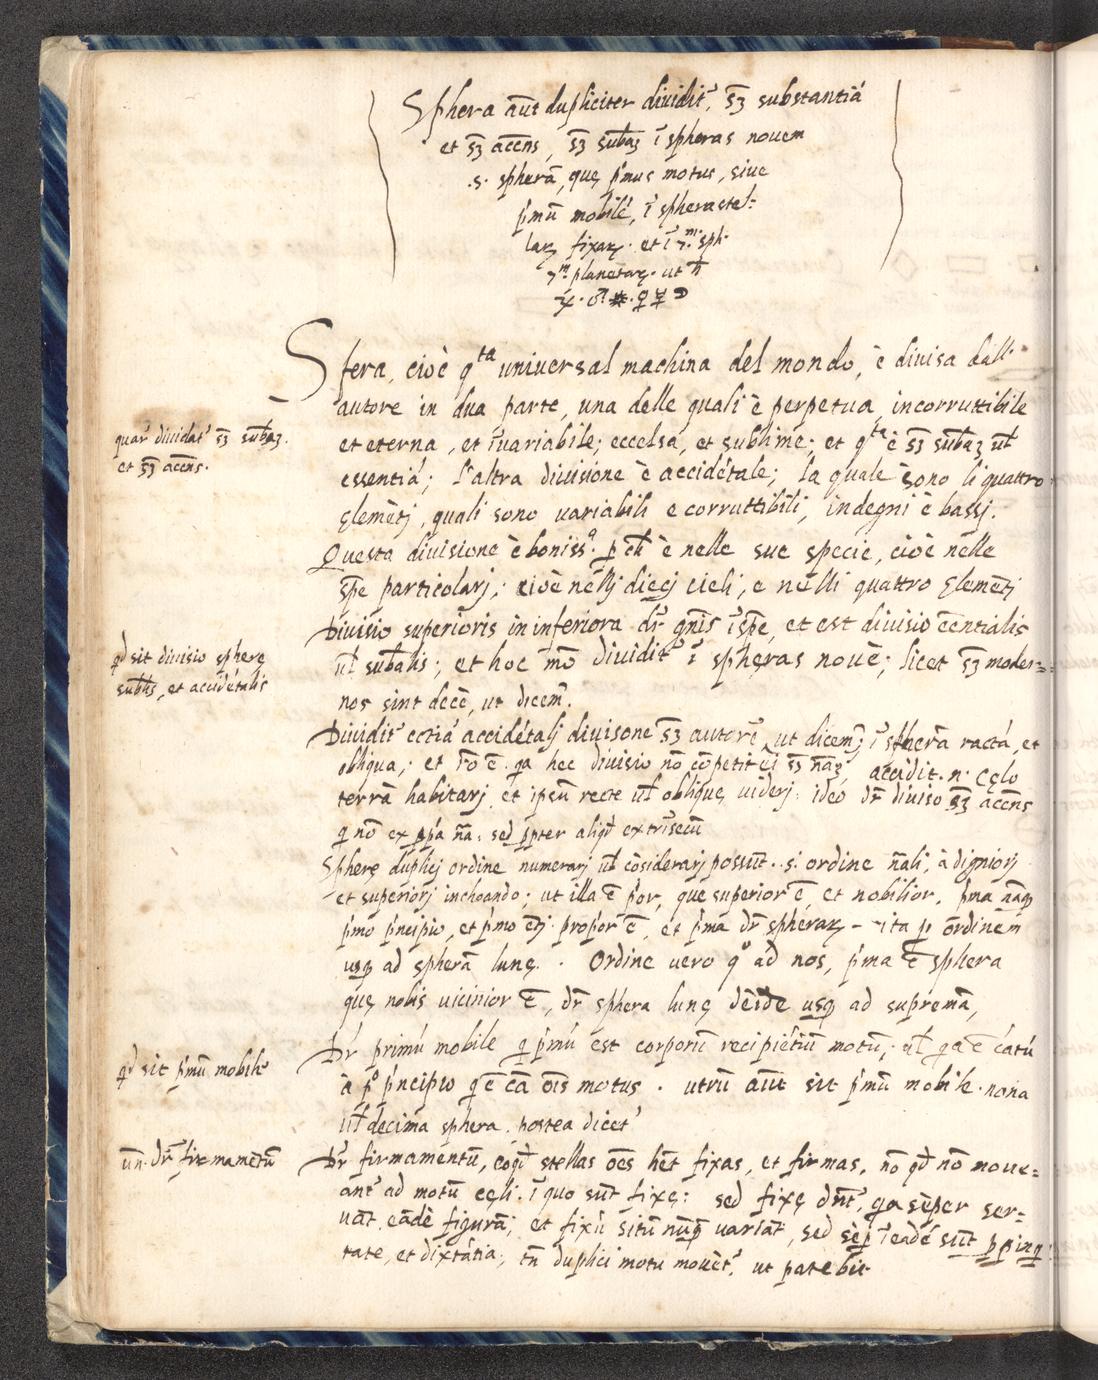 Sphera aūt dupliciter dividit᾽, s̄ꝫ substantiā
et s̄ꝫ accn̄s, s̄ꝫ subāꝫ ī spheras novem
.s. spherā, quę p᾽mus motus, sive
p᾽mū mobile, ī sphera stel:
laꝝ fixaꝝ. et ī 7.ᵐ sph.
7ᵐ planetaꝝ. ut ♄
♃. ♂. ☀. ♀ ☿ ☽
Sfera, cioè qᵗᵃ universal machina del mondo, è divisa dall'
autore in dua parte, una delle quali è perpetua, incorruttibile
quaŕ dividat᾽ s̄ꝫ subāꝫ.
et eterna, et īvariabile; eccelsa, et sublime; et qᵗᵃ è s̄ꝫ subāꝫ ul̄
et s̄ꝫ accn̄s.
essentiā; l'altra divisione è accidētale; la quale sono li quattro
ęlemētj, quali sono variabili e corruttibili, indegni è bassj.
Questa divisione è bonissᵃ. ꝑ ch̄ è nelle sue specie, cioè nelle
sp̄e particolarj; cioè nellj diecj cieli, e nelli quattro ęlemētj
Divisio superioris in inferiora dr̄ gn̄is ī sp̄e, et est divisio ēentialis
qd̄ sit divisio spherę
ul̄ subalis; et hoc mō dividit᾽ ī spheras novē; licet s̄ꝫ moder=
subl̄is, et accidētalis
nos sint decē, ut dicem᾽.
Dividit᾽ ectiā accidētalj divisone s̄ꝫ autorē, ut dicem᾽; ī spherā rectā, et
obliqua; et rō ē. qa hec divisio nō cōpetit ei s̄ꝫ nāꝫ accidit. n. cęlo
terrā habitarj et ipsū recte ul̄ oblique viderj. ideo dr̄ diviso s̄ꝫ accn̄s
q nō ex ꝓpa n̄a: sed ꝓpter aliqd̄ extrīsecū
Spherę duplicj ordine numerarj ul̄ cōsiderarj possūt. .s. ordine n̄ali, à digniorj
et superiorj inchoando; ut illa ē p᾽or, que superior ē, et nobilior. p᾽ma nāq
p᾽mo p᾽ncipio, et p᾽mo ētj propior ē, et p᾽ma dr̄ spheraꝝ - ita ꝑ ordinem
usq ad spherā lunę. . Ordine vero qº ad nos, p᾽ma ē sphera
quę nobis vicinior ē, dr̄ sphera lunę deīde usq ad supremā,
qd̄ sit p᾽mū mobile
Dr̄ primū mobile q p᾽mū est corporū recipiētiū motū; ul̄ qa ē cātū
à pº p᾽ncipio q ē cā ōis motus. utrū aūt sit p᾽mū mobile nona
ul̄ decima sphera. postea dicet᾽
un. dr̄ firmamētū
Dr̄ firmamentū, coqd̄ stellas ōes hēt fixas, et firmas, nō qd̄ nō move=
ant᾽ ad motū cęli. ī quo sūt fixę: sed fixę dn̄t᾽, qa sēper ser=
vāt eādē figurā; et fixū sitū nūq variāt, sed sēp īeadē sūt ꝓpinq
tate, et dixtātia; tn̄ duplici motu movēt᾽. ut patebit